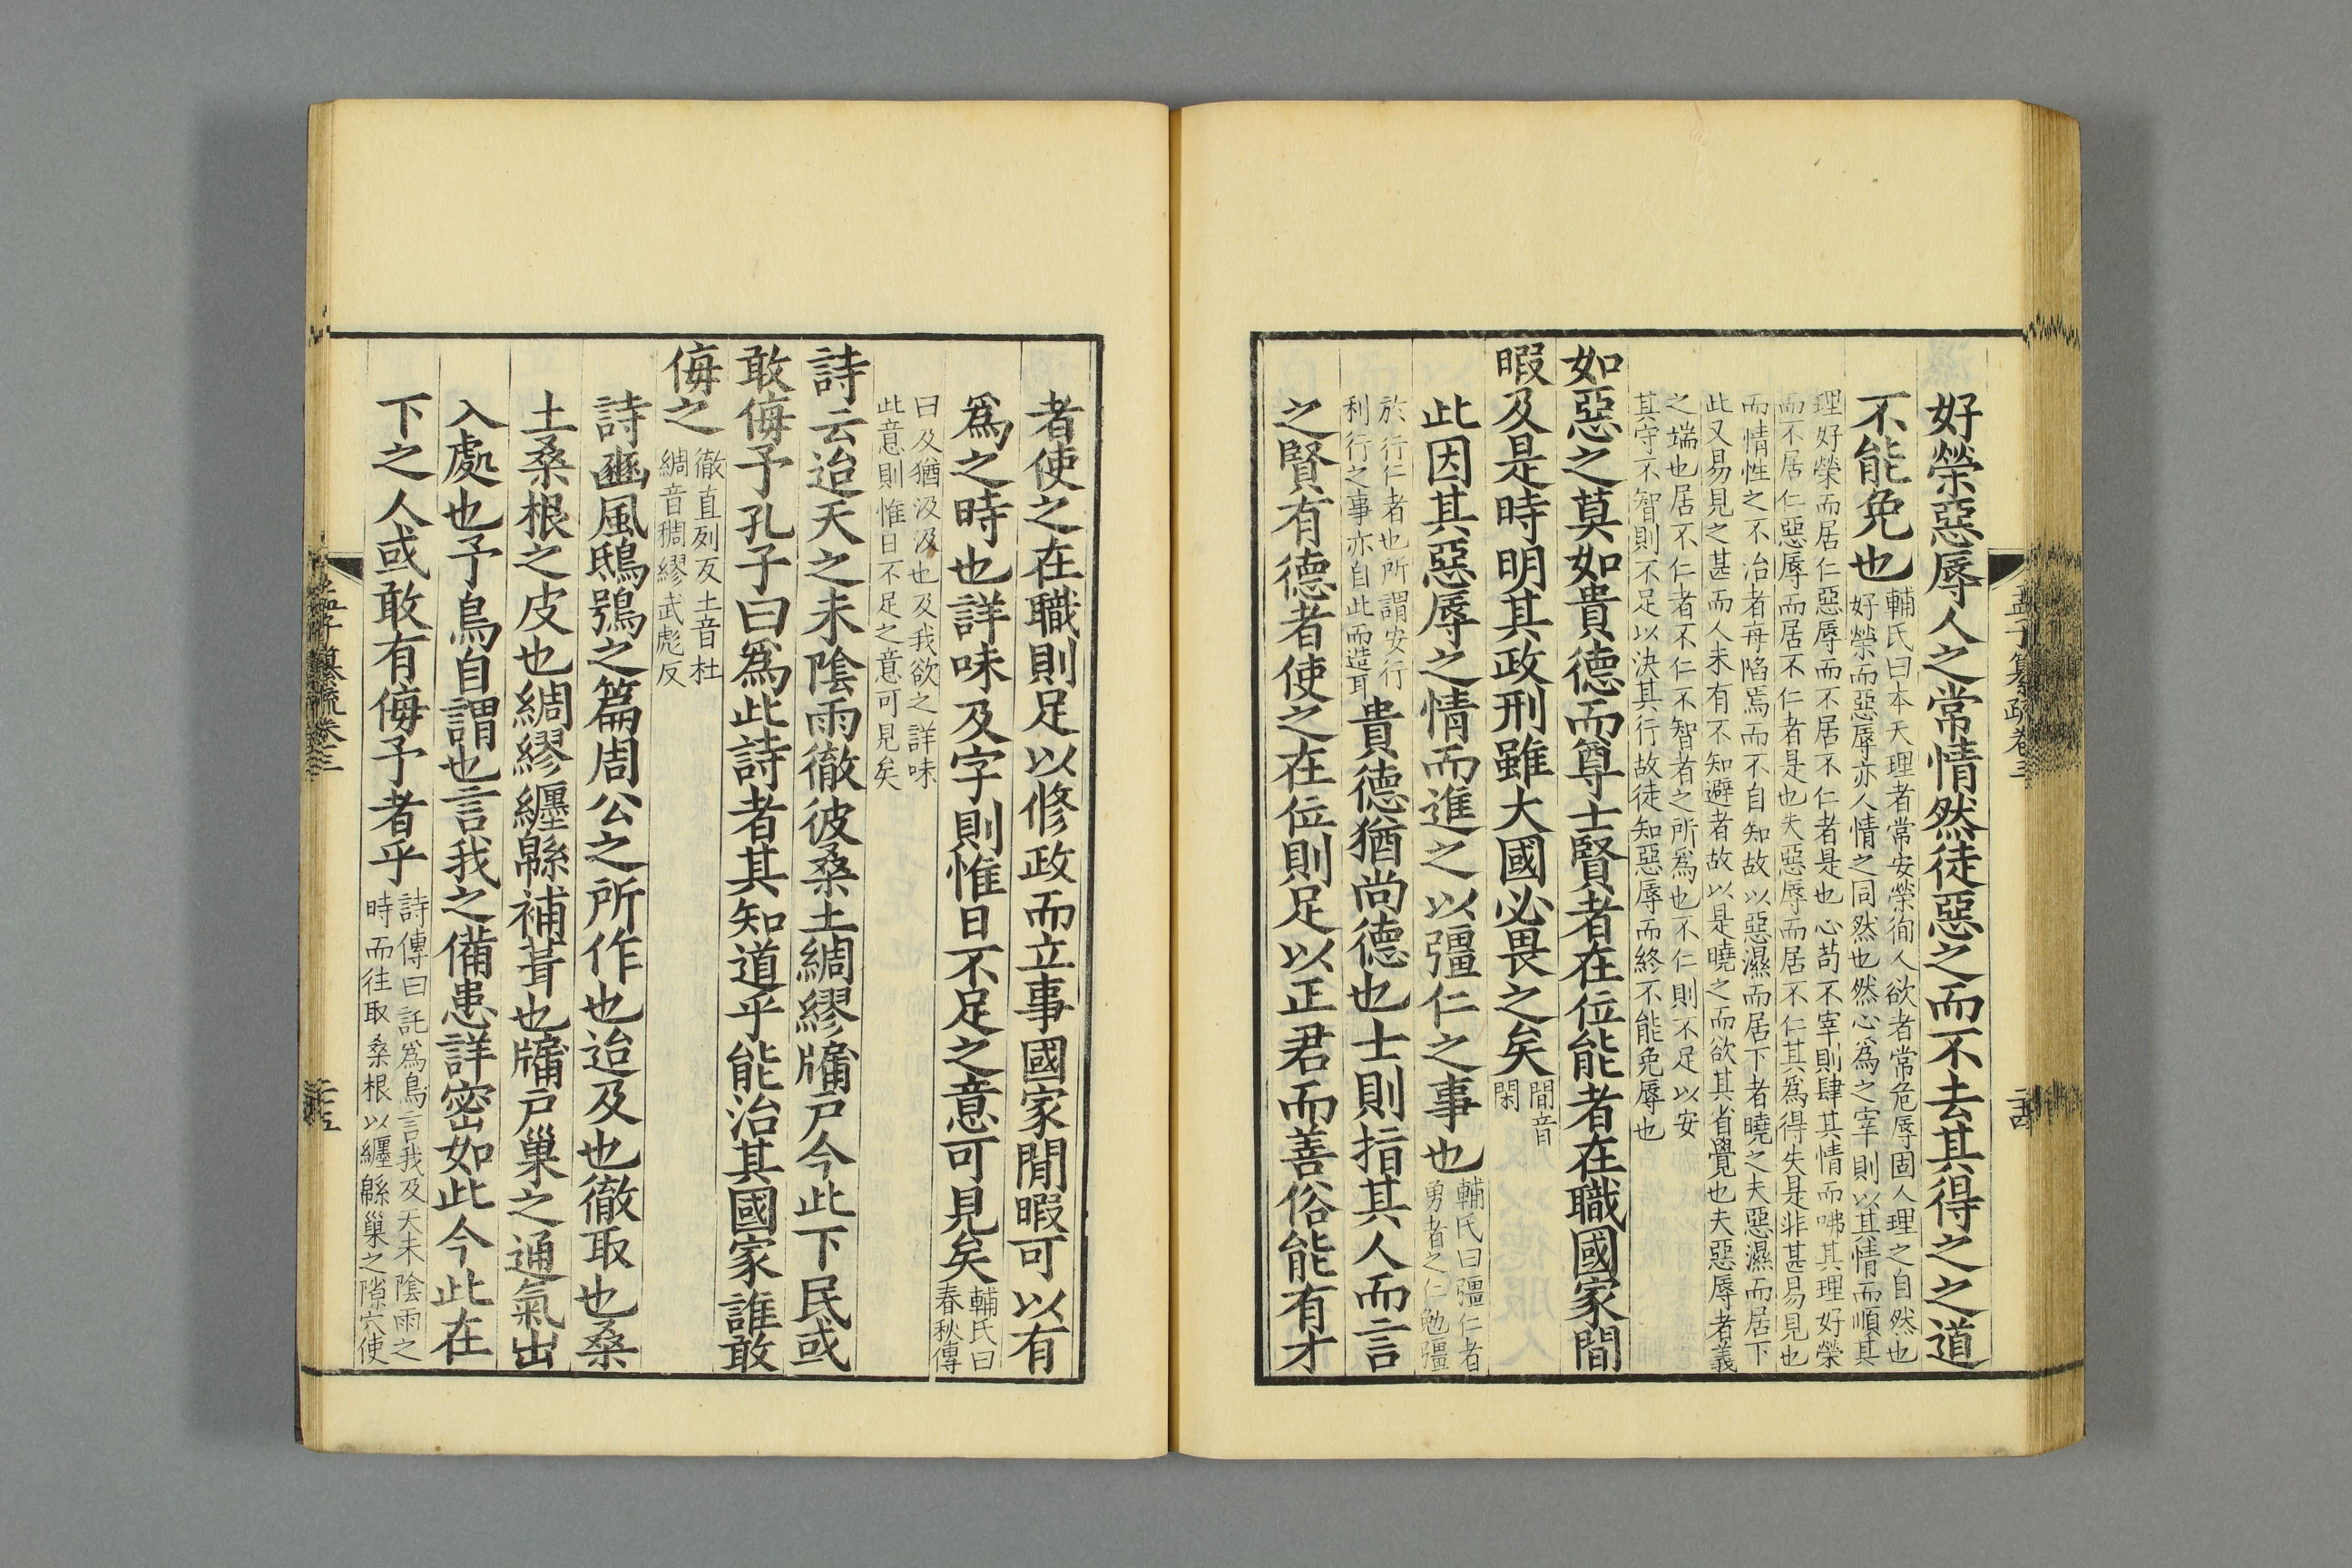 好榮惡辱人之常情然徒惡之而不去其得之之道
不能免也
輔氏曰本天理者常安榮徇人欲者常危辱固人理之自然也
好榮而惡辱亦人情之同然也然心為之宰則以其情而順其
理好榮而居仁惡辱而不居不仁者是也心苟不宰則肆其情而咈其理好榮
而不居仁惡辱而居不仁者是也夫惡辱而居不仁其爲得失是非甚易見也
而情性之不治者每陷焉而不自知故以惡濕而居下者曉之夫惡濕而居下
此又易見之甚而人未有不知避者故以是曉之而欲其省覺也夫惡辱者義
之端也居不仁者不仁不智者之所爲也不仁則不足以安
其守不智則不足以決其行故徒知惡辱而終不能免辱也
如惡之莫如貴德而尊士賢者在位能者在職國家閒
暇及是時明其政刑雖大國必畏之矣
閒音
閑
此因其惡辱之情而進之以彊仁之事也
輔氏曰彊仁者
勇者之仁勉彊
於行仁者也所謂安行
利行之事亦自此而造耳
貴德猶尚德也士則指其人而言
之賢有德者使之在位則足以正君而善俗能有才
孟子纂疏卷三
二十四
者使之在職則足以修政而立事國家閒暇可以有
爲之時也詳味及字則惟日不足之意可見矣
輔氏曰
春秋傳
曰及猶汲汲也及我欲之詳味
此意則惟日不足之意可見矣
詩云迨天之未陰雨徹彼桑土綢繆牖戶今此下民或
敢侮予孔子曰爲此詩者其知道乎能治其國家誰敢
侮之
徹直列反土音杜
綢音稠繆武彪反
詩豳風鴟鴞之篇周公之所作也迨及也徹取也桑
土桑根之皮也綢繆纏緜補葺也牖戶巢之通氣出
入處也予鳥自謂也言我之備患詳密如此今此在
下之人或敢有侮予者乎
詩傳曰託爲鳥言我及天未陰雨之
時而往取桑根以纏緜巢之隙穴使
孟子纂疏卷三
二十五